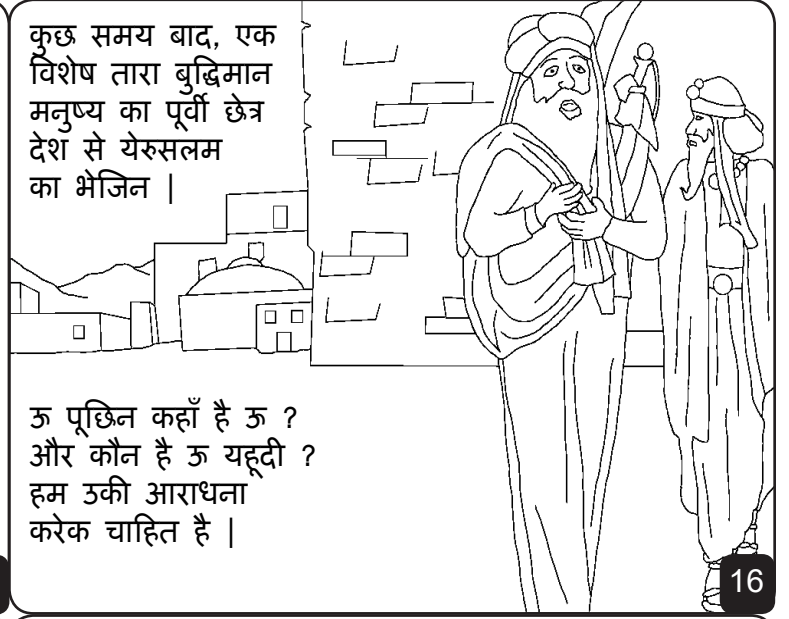 कुछ समय बाद, एक
विशेष तारा बुद्धिमान
मनुष्य का पूर्वी छेत्र
देश से येरुसलम
का भेजिन |
ऊ पूछिन कहाँ है ऊ ?
और कौन है ऊ यहूदी ?
हम उकी आराधना
करेक चाहित है |
16